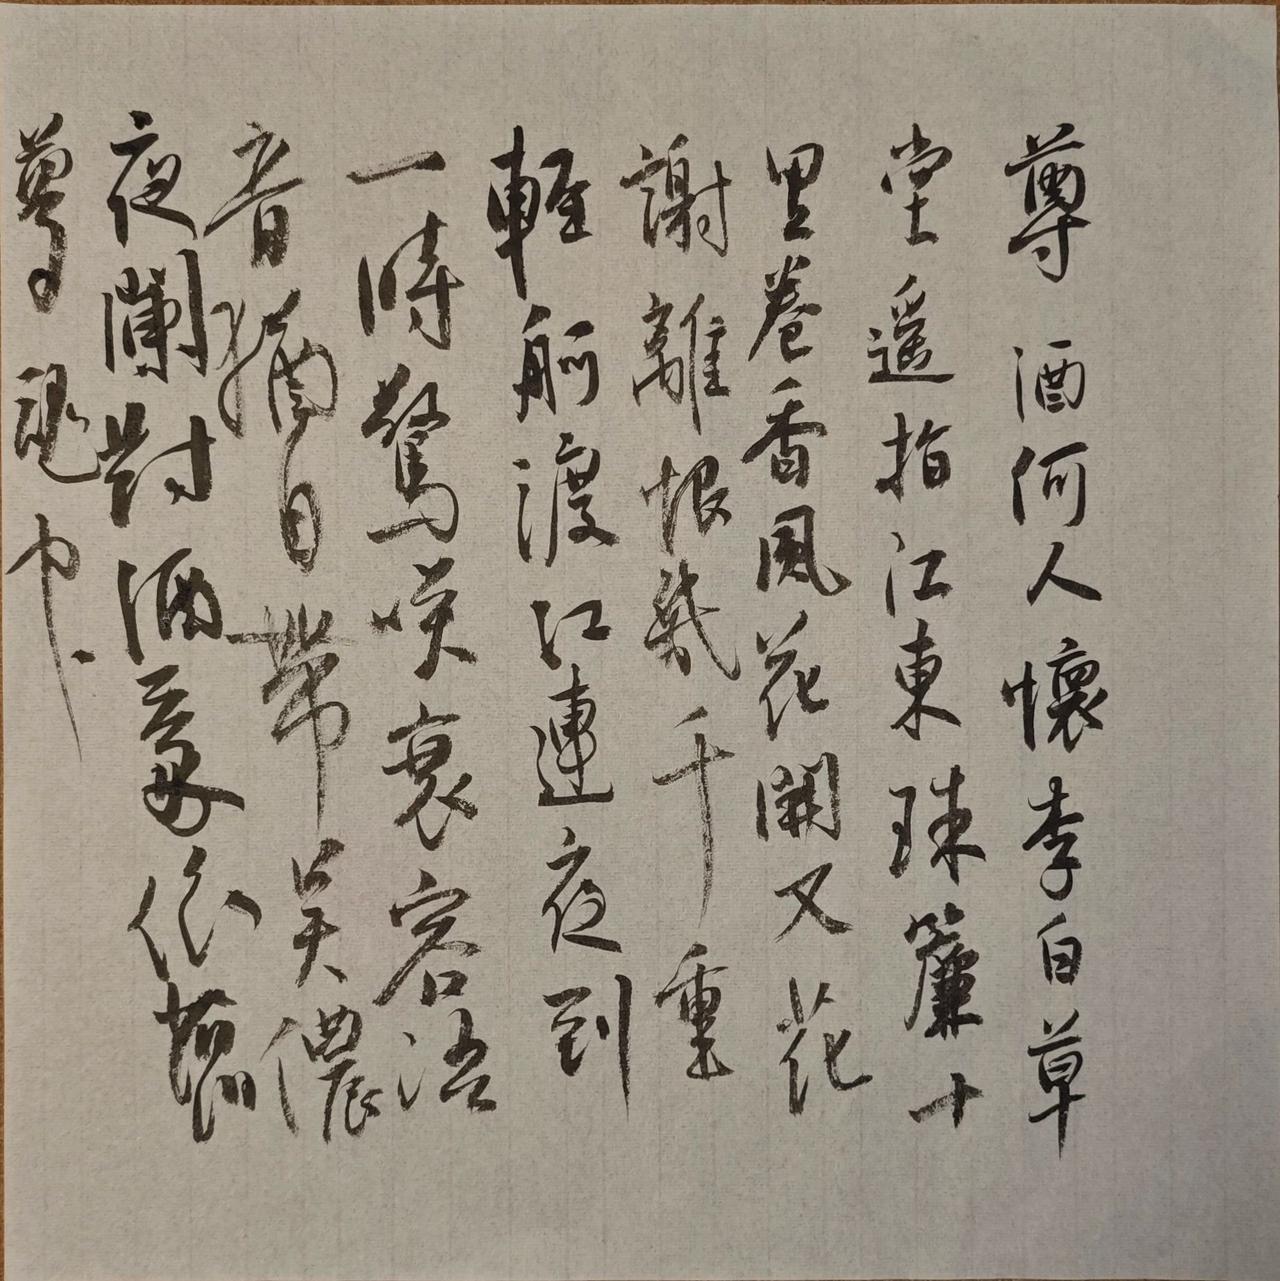 尊酒何人懷李白草
堂遥指江東珠簾十
里卷香風花開又花
謝離恨幾千重
輕舸渡江連夜到
一時驚咲衰容語
音猶自帶吳儂
夜闌對酒處依舊
夢魂中